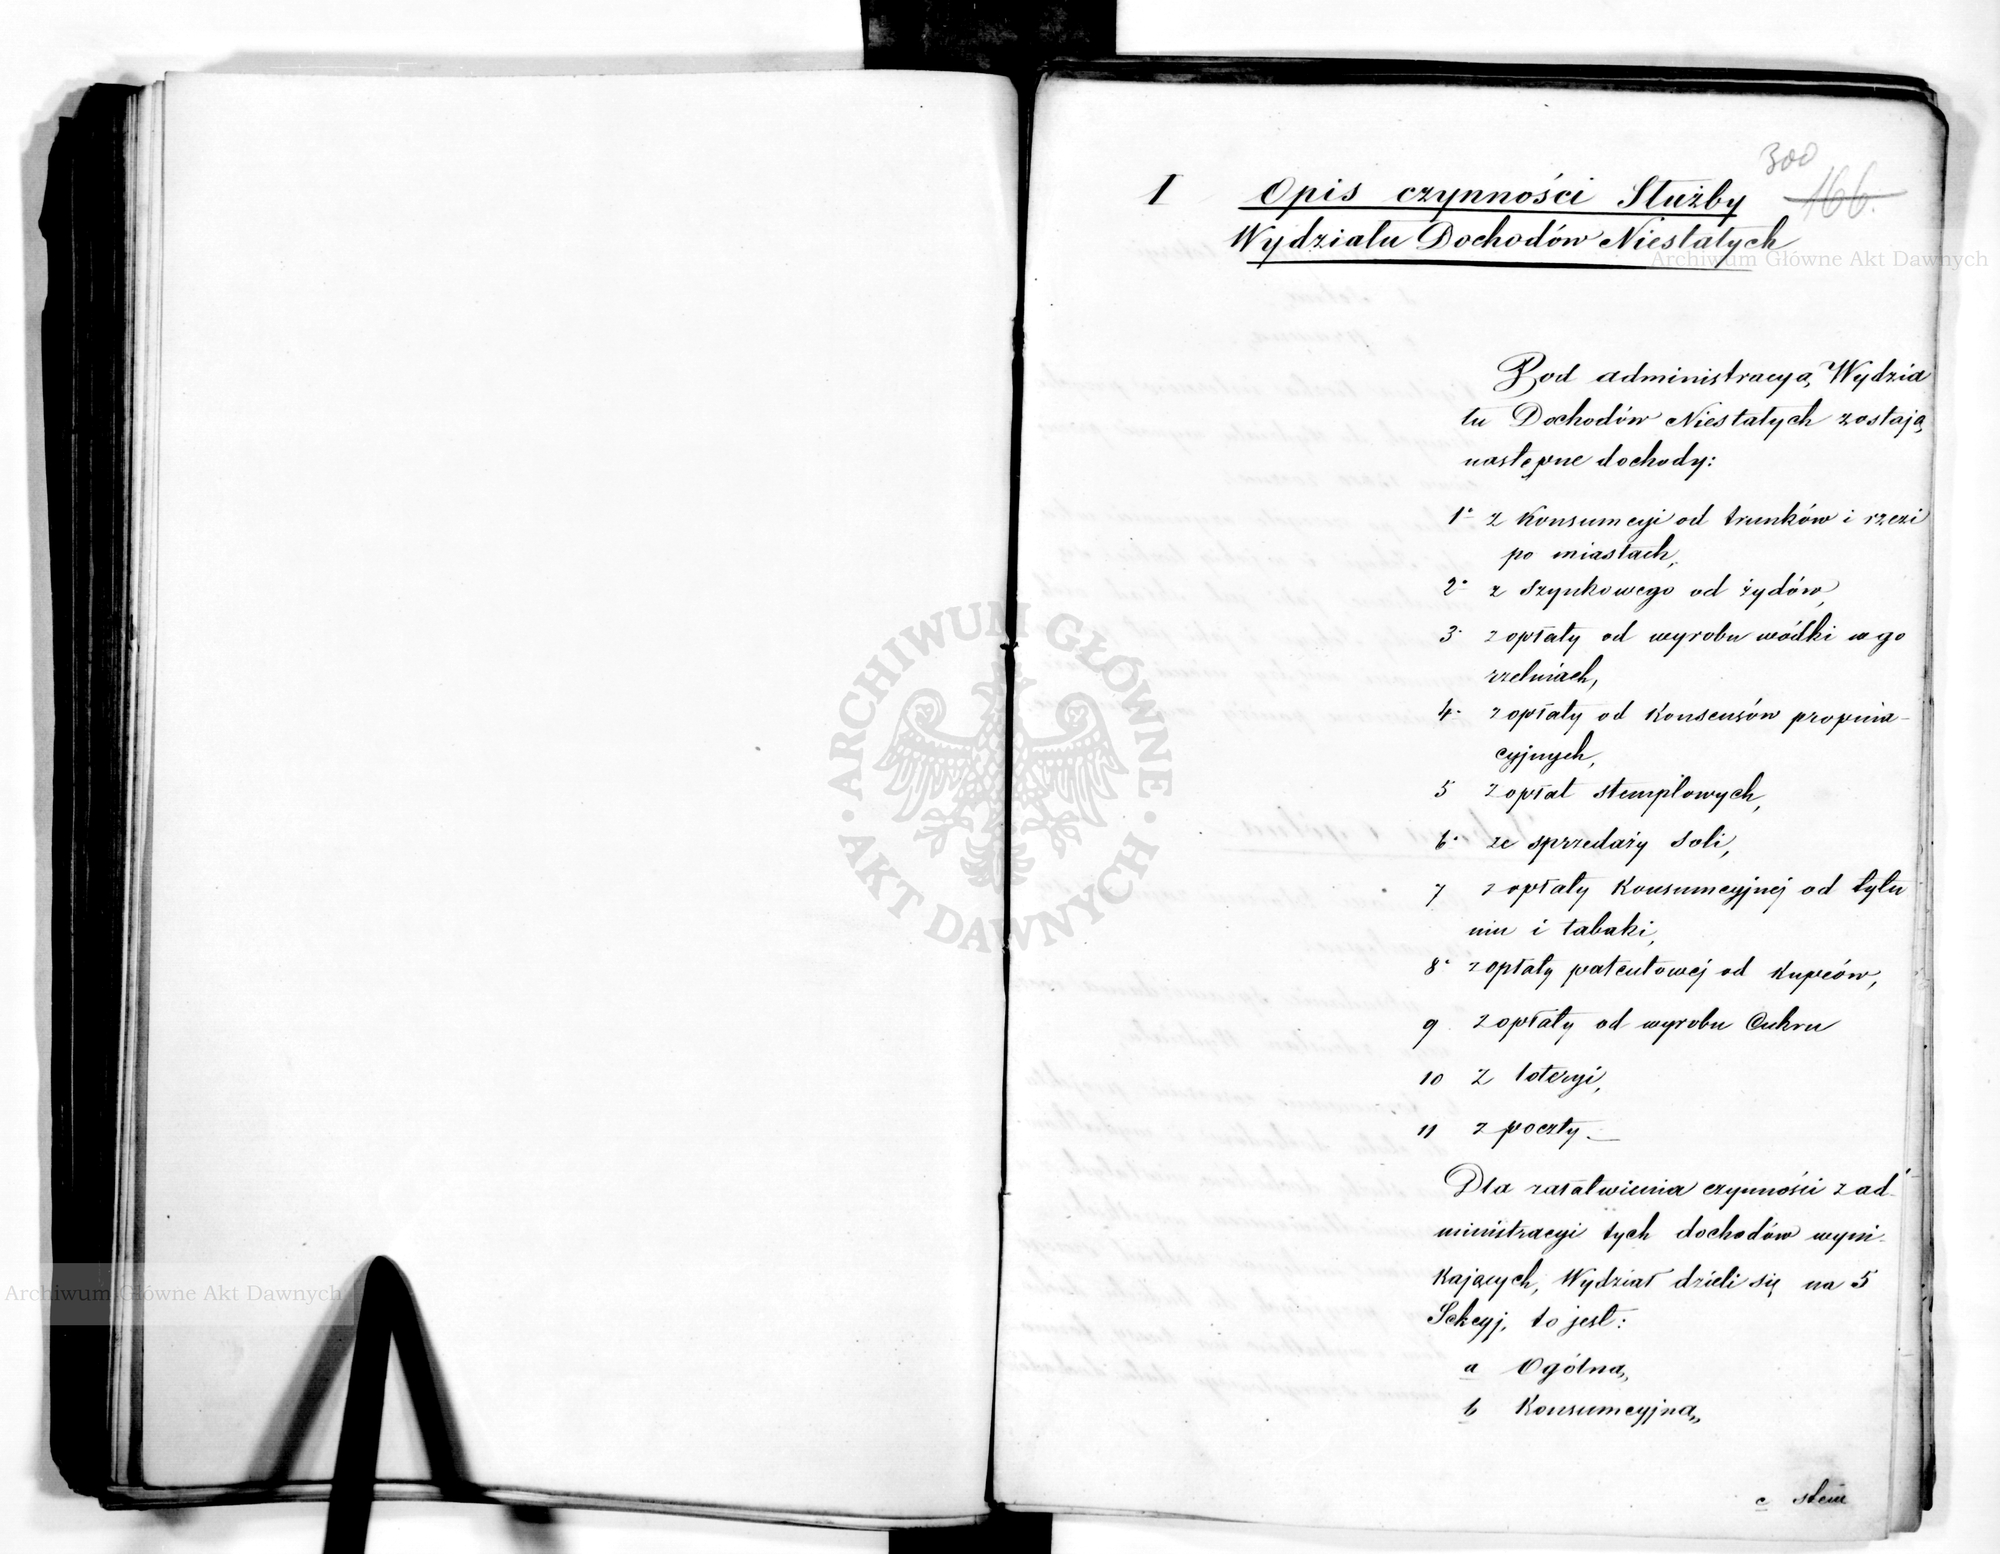 300
166.
I Opis czynności Służby
Wydziału Dochodów Niestałych
Pod administracyą Wydzia
łu Dochodów Niestałych zostają
następne dochody:
1° z Konsumcyi od trunków i rzezi
po miastach,
2° z szynkowego od żydów,
3° z opłaty od wyrobu wódki w go
rzelniach,
4° z opłaty od Konsensów propina-
cyjnych,
5 z opłat stemplowych,
6° ze sprzedaży soli,
7 z opłaty Konsumcyjnej od tytu
niu i tabaki,
8° z opłaty patentowej od Kupców,
9 z opłaty od wyrobu Cukru
10 z loteryi,
11 z poczty.—
Dla załatwienia czynności z ad-
ministracyi tych dochodów wyni-
kających, Wydział dzieli się na 5
Sekcyj, to jest:
a Ogólną,
b Konsumcyjną,
c stem
Archiwum Główne Akt Dawnych
Archiwum Główne Akt Dawnych
ARCHIWUM GŁÓWNE
AKT DAWNYCH